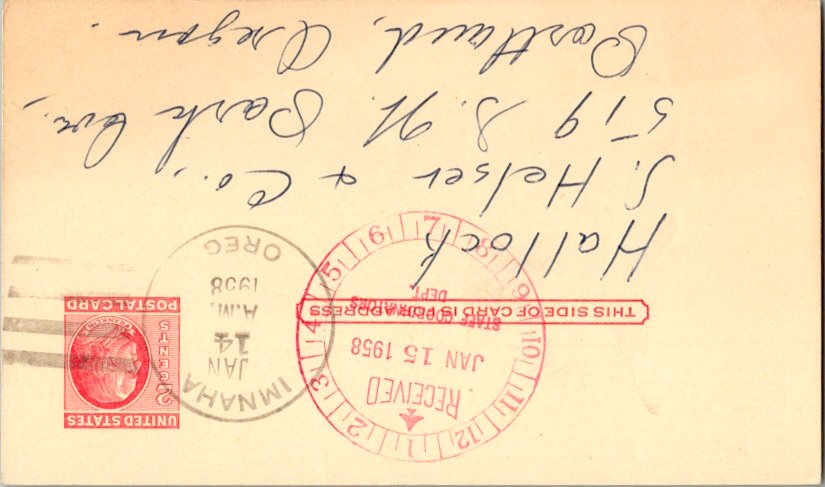 UNITED STATES
2 CENTS
FRANKLIN
POSTAL CARD
IMNAHA
JAN
14
A.M.
1958
OREG
12 1 2 3 4 5 6 7 8 9 10 11
RECEIVED
JAN 15 1958
STAFF COORDINATORS
DEPT
THIS SIDE OF CARD IS FOR ADDRESS
Hallock
J. Helser & Co.,
519 S. W. Park Ave,
Portland, Oregon.